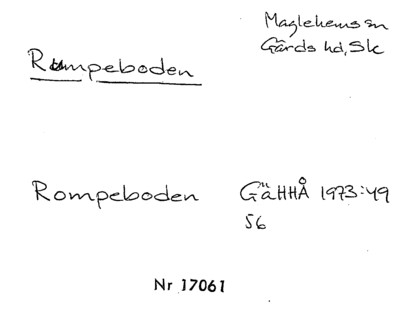 Maglehems sn
Gärds hd, Sk
Rumpeboden
Rompeboden GäHHÅ 1973:49
56
Nr 17061